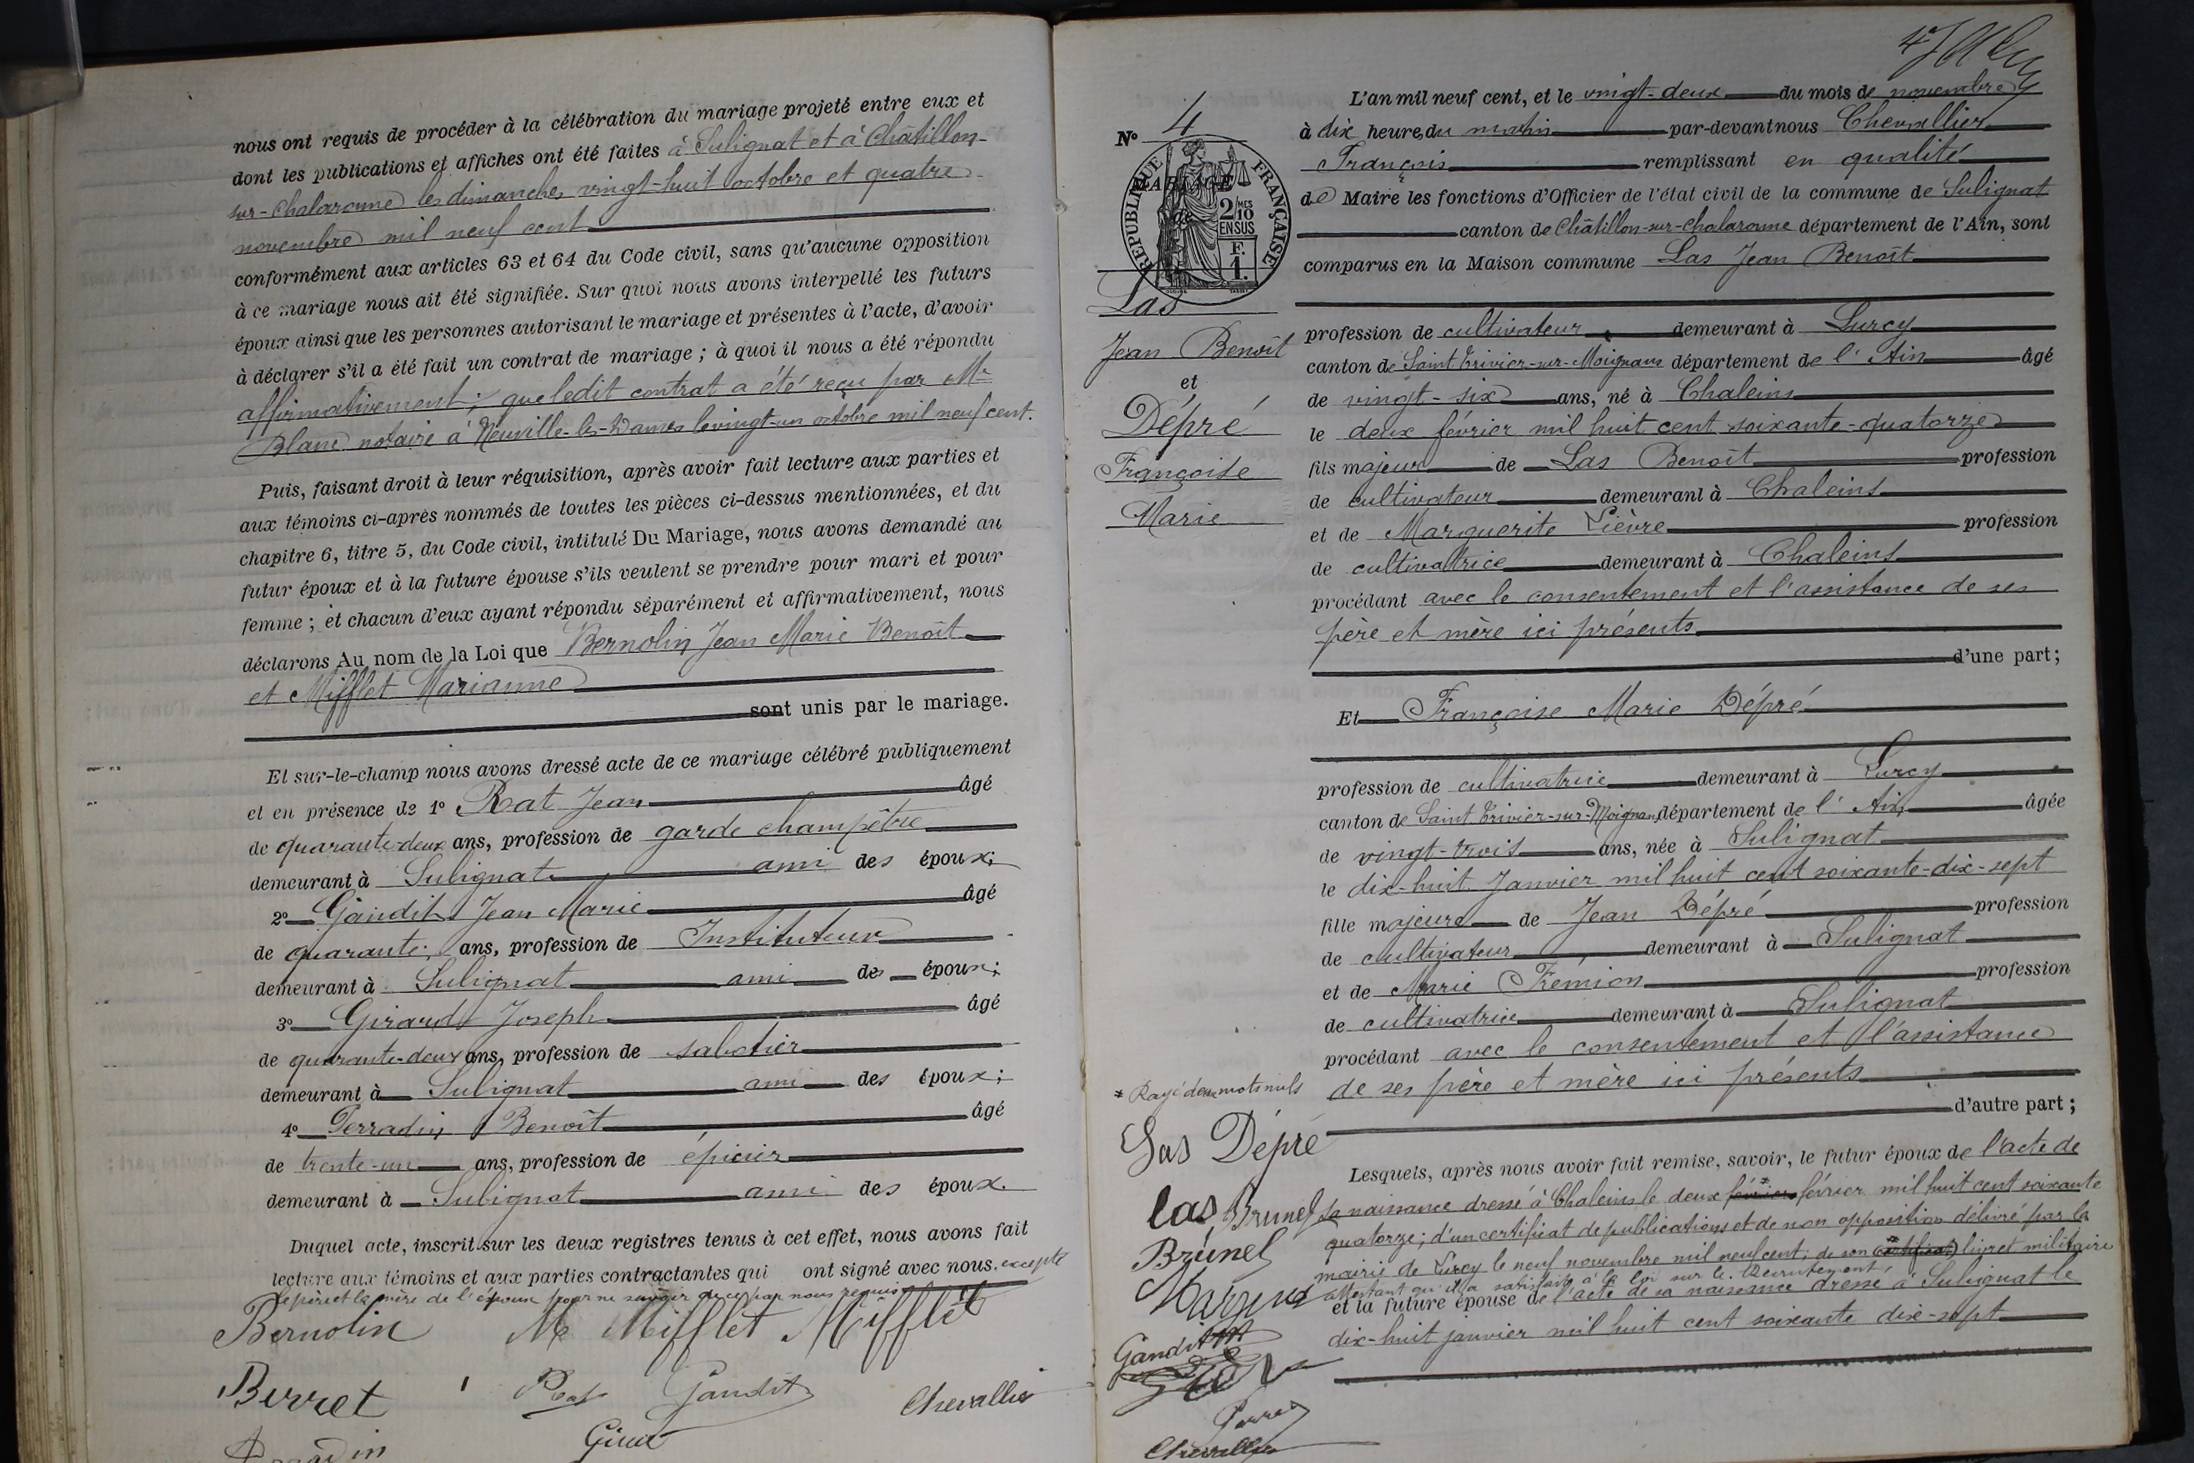 nous ont requis de procéder à la célébration du mariage projeté entre eux et
dont les publications et affiches ont été faites à Sulignat et à Châtillon-
sur-Chalaronne les dimanches vingt-huit octobre et quatre
novembre mil neuf cent
conformément aux articles 63 et 64 du Code civil, sans qu'aucune opposition
à ce mariage nous ait été signifiée. Sur quoi nous avons interpellé les futurs
époux ainsi que les personnes autorisant le mariage et présentes à l'acte, d'avoir
à déclarer s'il a été fait un contrat de mariage ; à quoi il nous a été répondu
affirmativement ; que ledit contrat a été reçu par Me
Blanc notaire à Neuville-les-Dames le vingt-un octobre mil neuf cent.
Puis, faisant droit à leur réquisition, après avoir fait lecture aux parties et
aux témoins ci-après nommés de toutes les pièces ci-dessus mentionnées, et du
chapitre 6, titre 5, du Code civil, intitulé Du Mariage, nous avons demandé au
futur époux et à la future épouse s'ils veulent se prendre pour mari et pour
femme ; et chacun d'eux ayant répondu séparément et affirmativement, nous
déclarons Au nom de la Loi que Bernolin Jean Marie Benoît
et Mifflet Marianne
sont unis par le mariage.
Et sur-le-champ nous avons dressé acte de ce mariage célébré publiquement
et en présence de 1° Rat Jean âgé
de quarante-deux ans, profession de garde champêtre
demeurant à Sulignat ami des époux;
2° Gandit Jean Marie âgé
de quarante ans, profession de Instituteur
demeurant à Sulignat ami des époux;
3° Girard Joseph âgé
de quarante-deux ans, profession de sabotier
demeurant à Sulignat ami des époux;
4° Perradin Benoît âgé
de trente-un ans, profession de épicier
demeurant à Sulignat ami des époux.
Duquel acte, inscrit sur les deux registres tenus à cet effet, nous avons fait
lecture aux témoins et aux parties contractantes qui ont signé avec nous. excepté
le père et la mère de l'époux pour ne savoir de ce par nous requis
Bernolin M Mifflet Mifflet
Berret Rat Gandit Chevallier
Girard
N° 4
MARIAGE
de
RÉPUBLIQUE FRANÇAISE
2/10 MES
EN SUS
F.
1.
Las
Jean Benoît
et
Dépré
Françoise
Marie
L'an mil neuf cent, et le vingt-deux du mois de novembre
à dix heures du matin par-devant nous Chevallier
François remplissant en qualité
de Maire les fonctions d'Officier de l'état civil de la commune de Sulignat
canton de Châtillon-sur-Chalaronne département de l'Ain, sont
comparus en la Maison commune Las Jean Benoît
profession de cultivateur demeurant à Lurcy
canton de Saint Trivier-sur-Moignans département de l'Ain âgé
de vingt-six ans, né à Chaleins
le deux février mil huit cent soixante-quatorze
fils majeur de Las Benoît profession
de cultivateur demeurant à Chaleins
et de Marguerite Lièvre profession
de cultivatrice demeurant à Chaleins
procédant avec le consentement et l'assistance de ses
père et mère ici présents
d'une part;
Et Françoise Marie Dépré
profession de cultivatrice demeurant à Lurcy
canton de Saint Trivier-sur-Moignans département de l'Ain âgée
de vingt-trois ans, née à Sulignat
le dix-huit Janvier mil huit cent soixante-dix-sept
fille majeure de Jean Dépré profession
de cultivateur demeurant à Sulignat
et de Marie Frémion profession
de cultivatrice demeurant à Sulignat
procédant avec le consentement et l'assistance
de ses père et mère ici présents
d'autre part ;
Lesquels, après nous avoir fait remise, savoir, le futur époux de l'acte de
sa naissance dressé à Chaleins le deux février février mil huit cent soixante
quatorze; d'un certificat de publications et de non opposition délivré par la
mairie de Lurcy le neuf novembre mil neuf cent; de son certificat livret militaire
attestant qu'il a satisfait à la loi sur le Recrutement,
et la future épouse de l'acte de sa naissance dressé à Sulignat le
dix-huit janvier mil huit cent soixante dix-sept
* Rayé deux mots nuls
Las Dépré
las Brunel
Brunel
Gandit
Chevallier